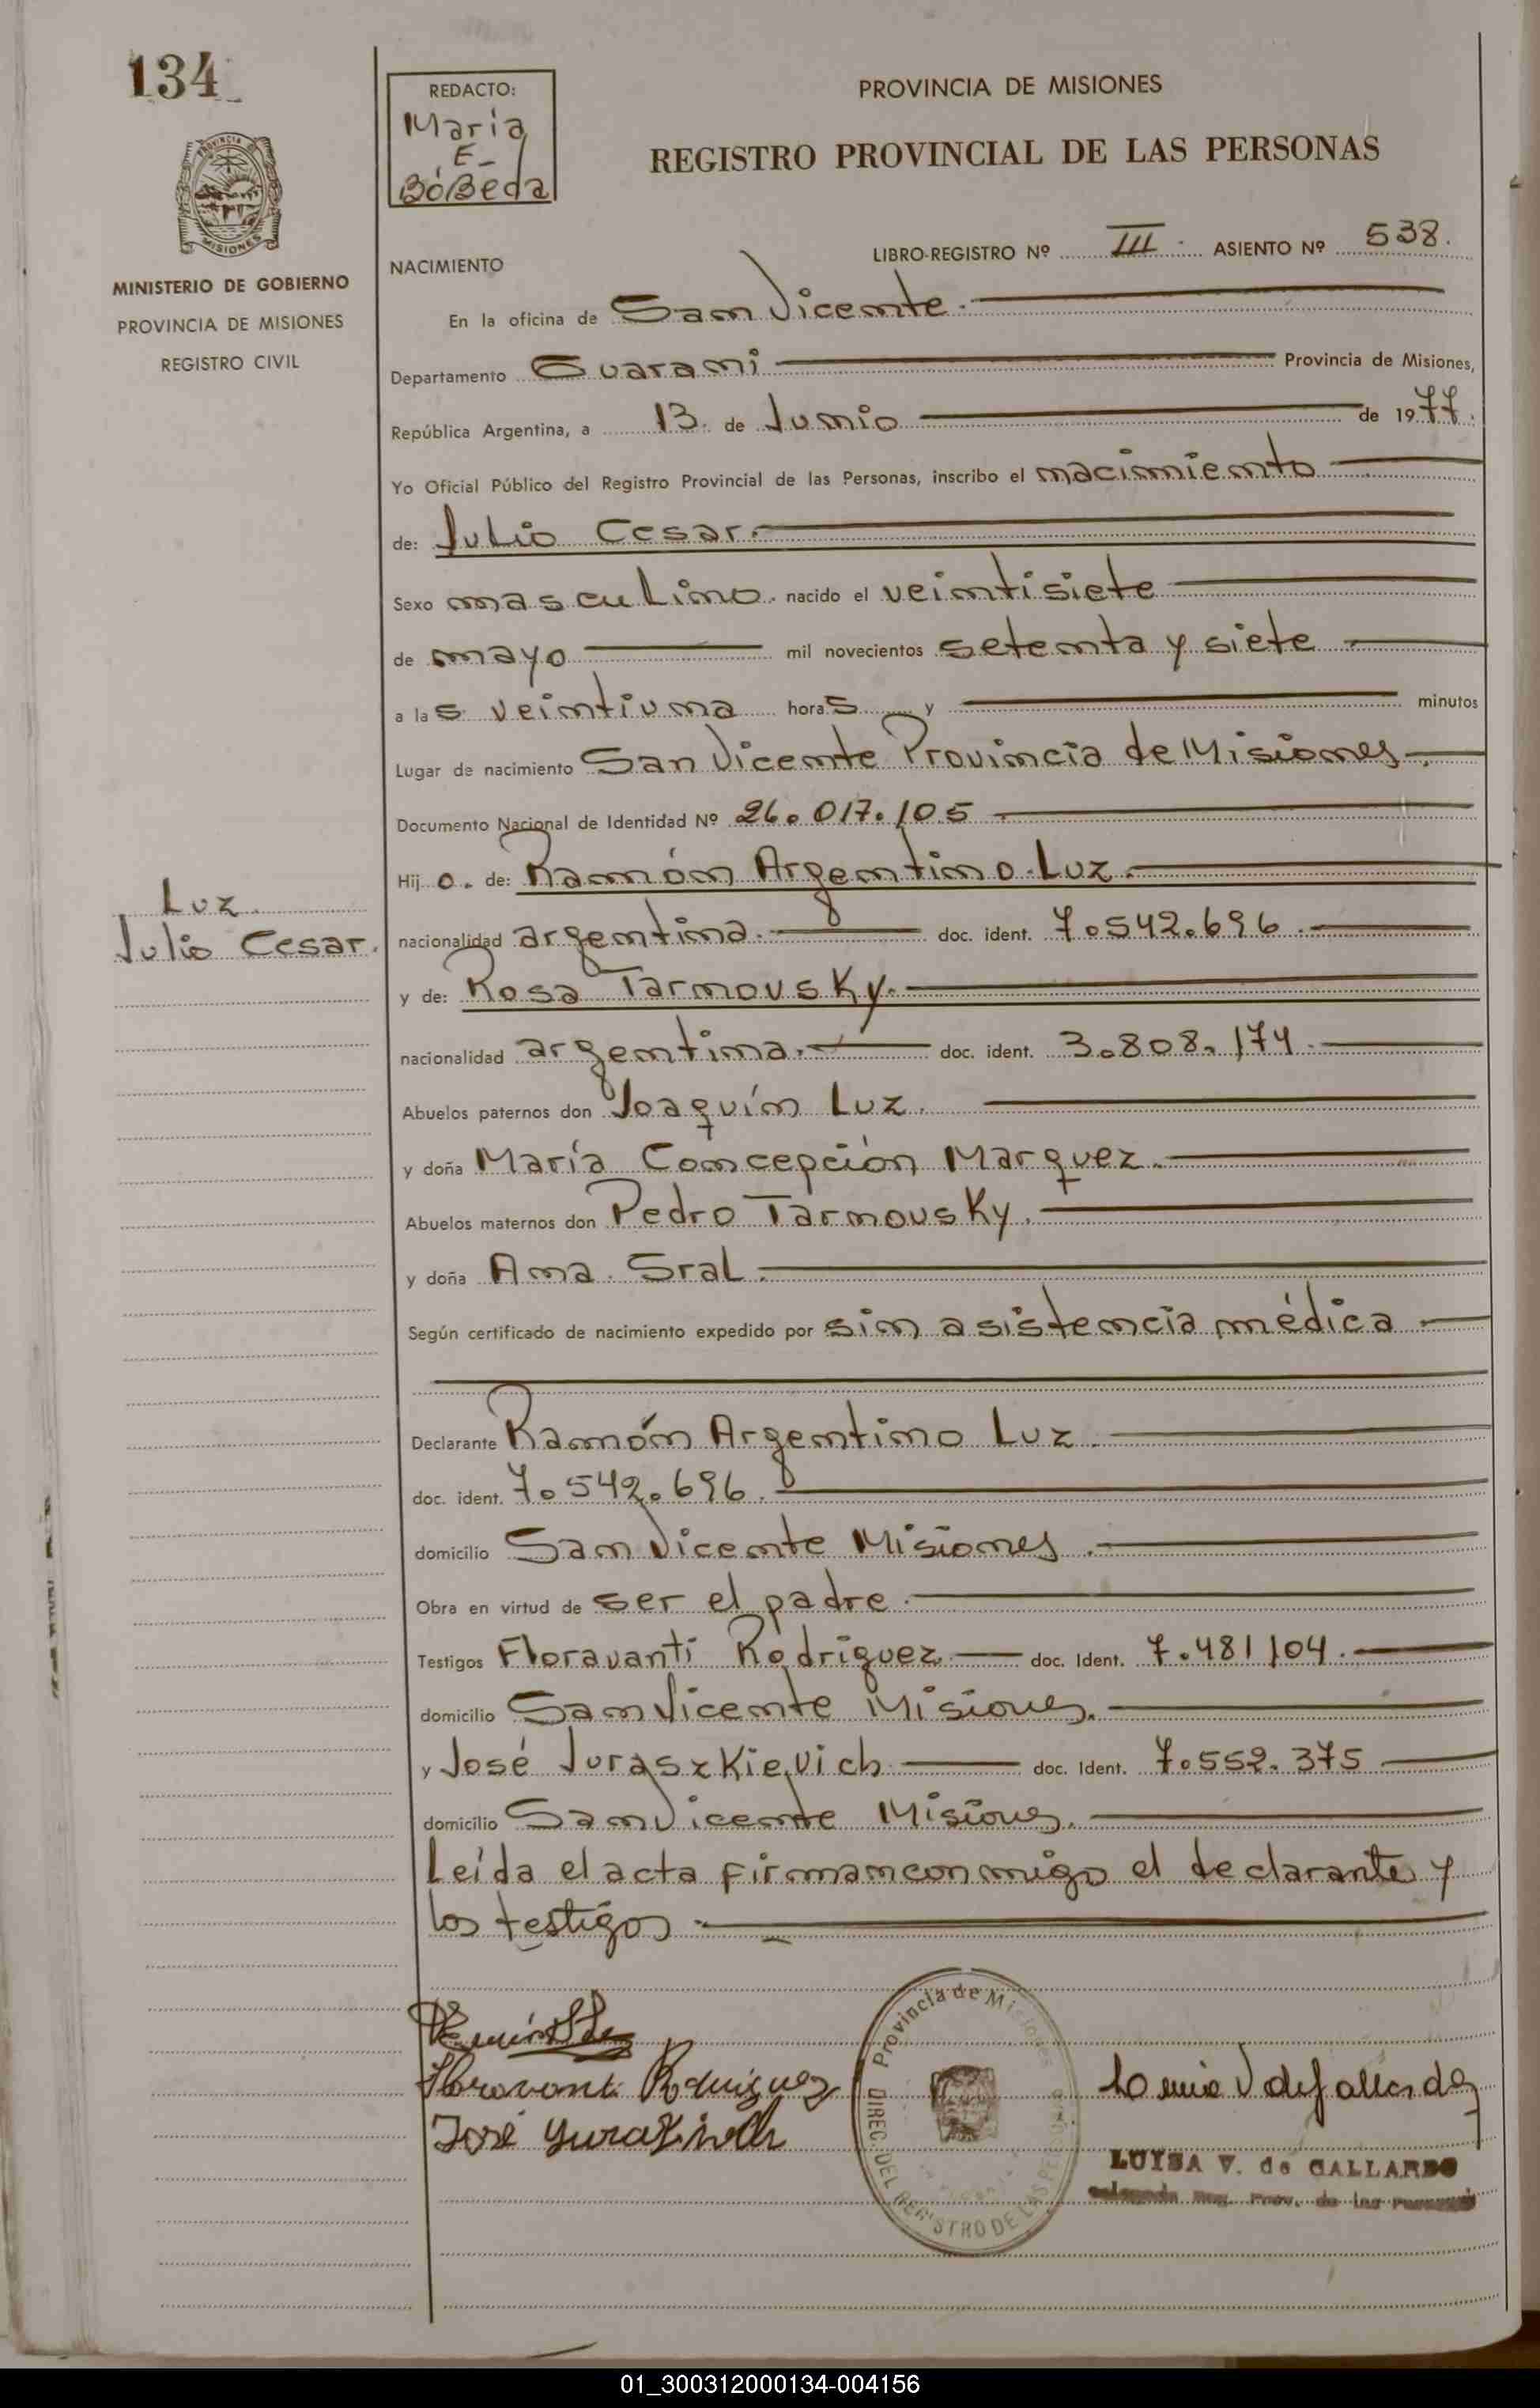 134
REDACTO:
María
E-
BóBeda
PROVINCIA DE MISIONES
REGISTRO PROVINCIAL DE LAS PERSONAS
PROVINCIA DE
MISIONES
MINISTERIO DE GOBIERNO
PROVINCIA DE MISIONES
REGISTRO CIVIL
NACIMIENTO
LIBRO-REGISTRO Nº III. ASIENTO Nº 538.
En la oficina de San Vicente.
Departamento Guarani Provincia de Misiones,
República Argentina, a 13. de Junio de 1977.
Yo Oficial Público del Registro Provincial de las Personas, inscribo el nacimiento
de: Julio Cesar.
Sexo masculino. nacido el veintisiete
de mayo mil novecientos setenta y siete
a las veintiuna horas y minutos
Lugar de nacimiento San Vicente Provincia de Misiones.
Documento Nacional de Identidad Nº 26.017.105
Hijo. de: Ramón Argentino Luz.
Luz
Julio Cesar.
nacionalidad argentina. doc. ident. 7.542.696.
y de: Rosa Tarnovsky.
nacionalidad argentina. doc. ident. 3.808.174.
Abuelos paternos don Joaquín Luz.
y doña María Concepción Marquez.
Abuelos maternos don Pedro Tarnovsky.
y doña Ana Sral.
Según certificado de nacimiento expedido por sin asistencia médica
Declarante Ramón Argentino Luz.
doc. ident. 7.542.696.
domicilio San Vicente Misiones.
Obra en virtud de ser el padre.
Testigos Floravanti Rodriguez doc. Ident. 7.481104.
domicilio San Vicente Misiones.
y José Juraszkievich doc. Ident. 7.552.375
domicilio San Vicente Misiones.
Leída el acta firman conmigo el declarante y
los testigos.
Floravanti Rodriguez
José
Provincia de Misiones
DIREC. DEL REGISTRO DE LAS PERSONAS
LUISA V. de GALLARDO
Delegada Reg. Prov. de las Personas
01_300312000134-004156